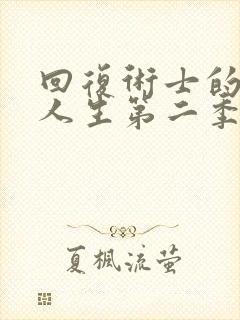 回復術士的
人生第二季
夏楓流萤